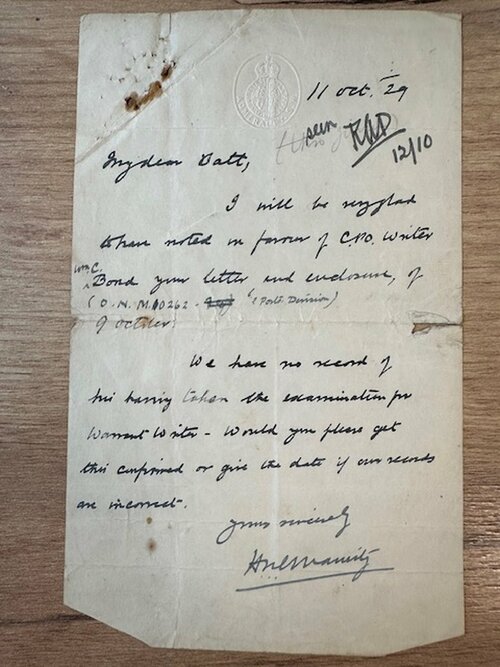 ADMIRALTY
11 Oct. 29
seen
12/10
My dear Batt,
I will be very glad
to have noted in favour of C.P.O. Writer
Wm. C.
Bond your letter and enclosure, of
(O.N. M.10262 - (Ports. Division)
9 October.
We have no record of
his having taken the examination for
Warrant Writer - Would you please get
this confirmed or give the date if our records
are incorrect.
Yours sincerely